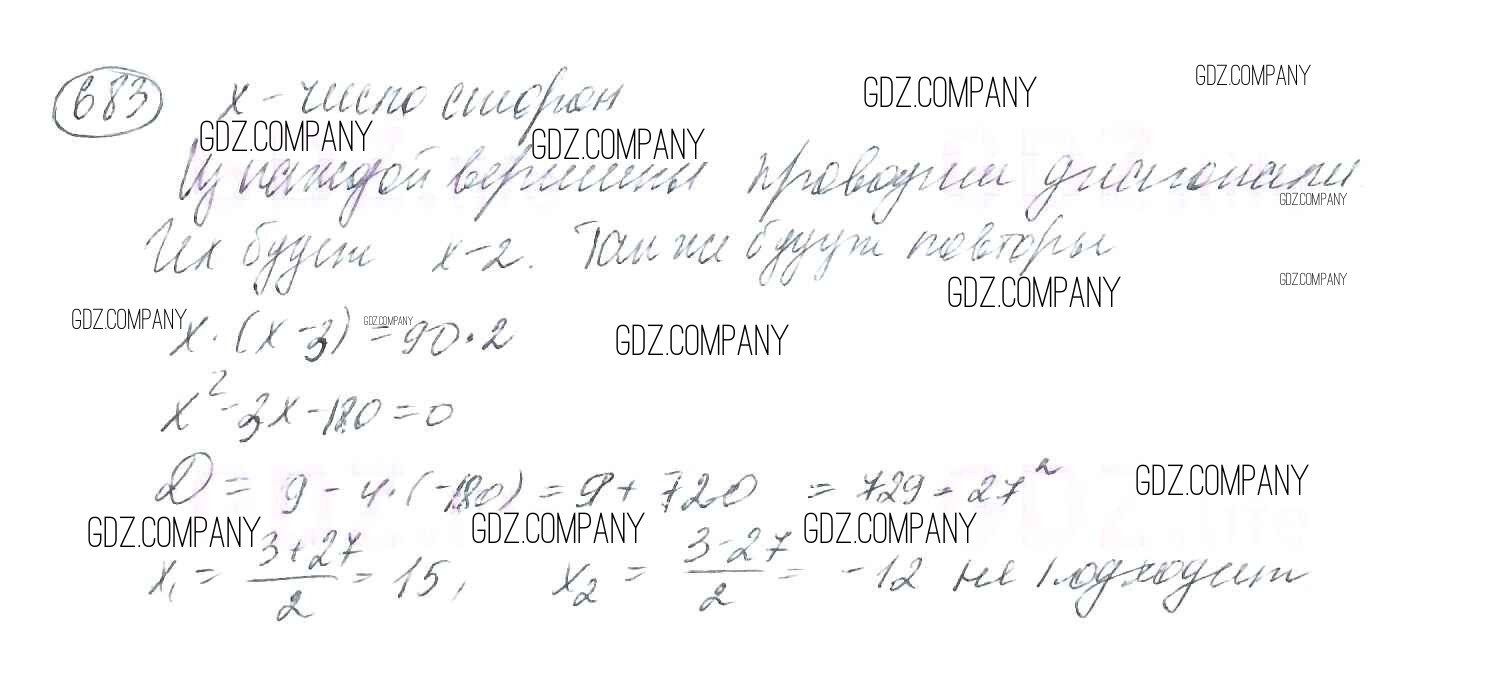 683 x - число сторон
GDZ.COMPANY GDZ.COMPANY
GDZ.COMPANY GDZ.COMPANY
Из каждой вершины проводим диагонали.
GDZ.COMPANY
Их будет x-2. Так же будут повторы
GDZ.COMPANY GDZ.COMPANY
GDZ.COMPANY GDZ.COMPANY GDZ.COMPANY
x·(x-3)=90·2
x²-3x-180=0
D = 9 - 4·(-180) = 9 + 720 = 729 = 27²
GDZ.COMPANY
GDZ.COMPANY GDZ.COMPANY GDZ.COMPANY
x₁ = (3+27)/2 = 15, x₂ = (3-27)/2 = -12 не подходит